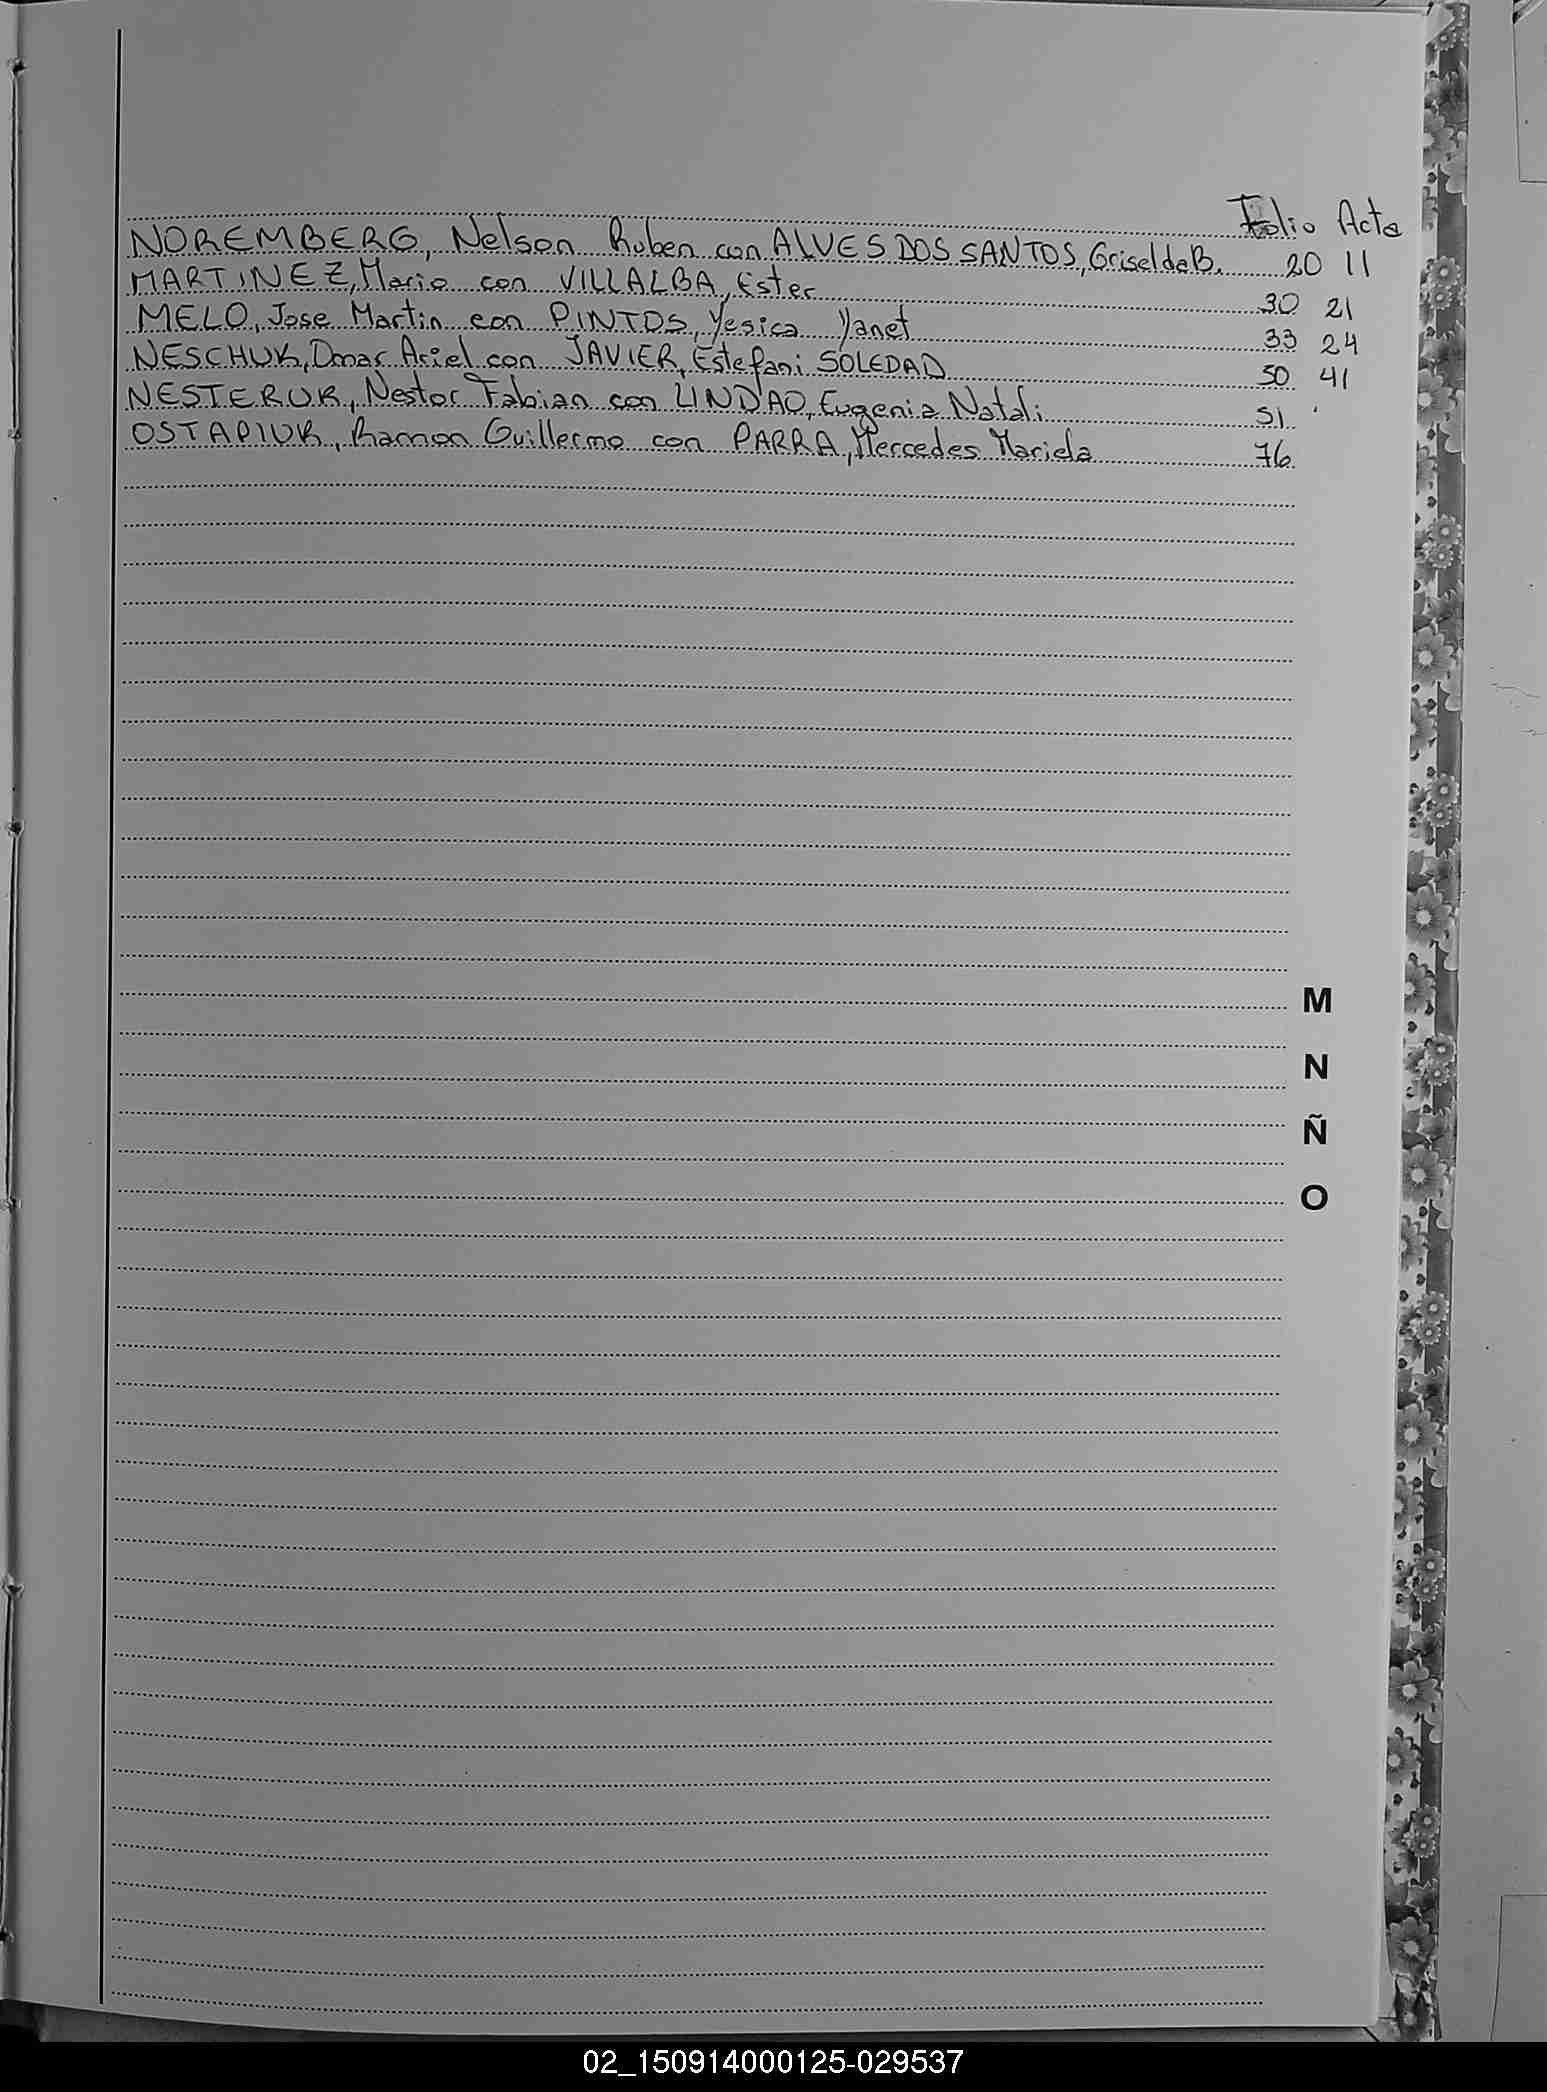 Folio Acta
NOREMBERG, Nelson Ruben con ALVES DOS SANTOS, Griselda B. 20 11
MARTINEZ, Mario con VILLALBA, Ester 30 21
MELO, Jose Martin con PINTOS, Yesica Yanet 33 24
NESCHUK, Omar Ariel con JAVIER, Estefani SOLEDAD 50 41
NESTERUK, Nestor Fabian con LINDAO, Eugenia Natali 51
OSTAPIUK, Ramon Guillermo con PARRA, Mercedes Mariela 76
M
N
Ñ
O
02_150914000125-029537